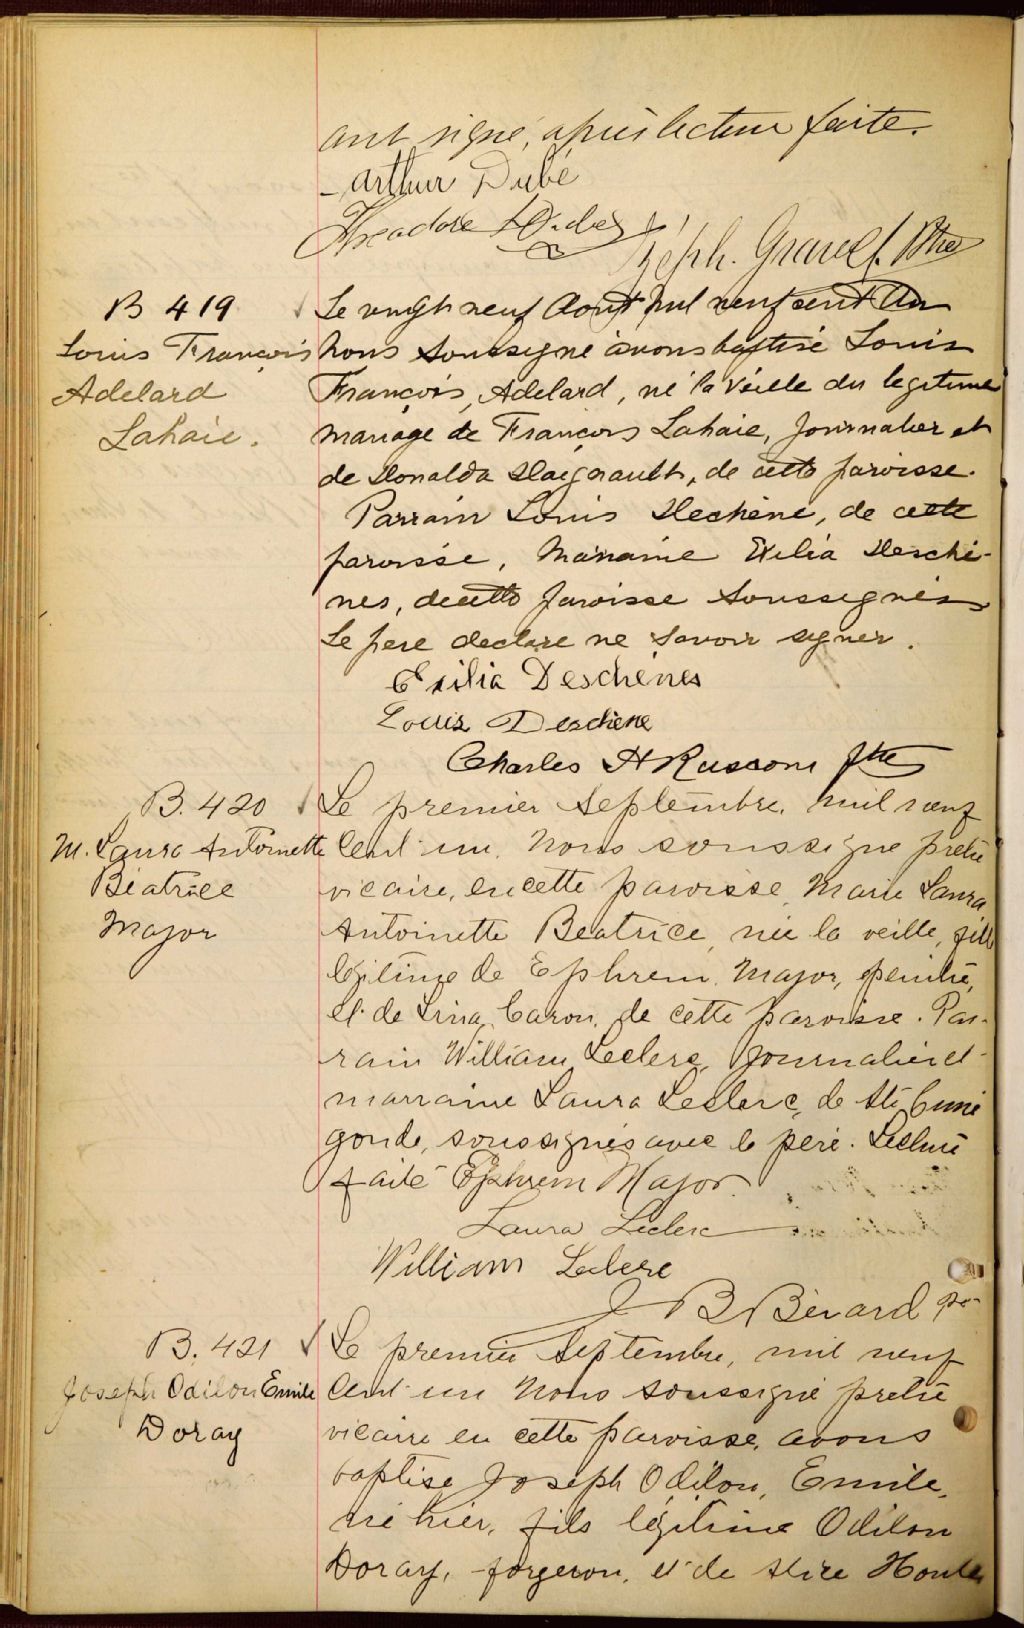 ont signé, après lecture faite.
Arthur Dubé
Theodore Dubé
Zéph. Gravel. Ptre
B 419
Louis François
Adelard
Lahaie.
Le vingt neuf Aout mil neuf cent un
nous soussigné avons baptisé Louis
François, Adelard, né la veille du legitime
mariage de François Lahaie, journalier et
de Donalda Daignault, de cette paroisse.
Parrain Louis Dechêne, de cette
paroisse, Marraine Exilia Desche-
nes, de cette paroisse soussignés
Le pere declare ne savoir signer.
Exilia Deschênes
Louis Deschene
Charles H Rusconi ptre
B. 420
M. Laura Antoinette
Béatrice
Major
Le premier Septembre, mil neuf
Cent un. Nous soussigné pretre
vicaire, en cette paroisse, Marie Laura
Antoinette Beatrice, née la veille, fille
légitime de Ephrem Major, peintre,
et de Lina Caron, de cette paroisse. Par-
rain William Leclerc, journalier et
marraine Laura Leclerc, de Ste Cuné
gonde, soussignés avec le père. Lecture
faite Ephrem Major.
Laura Leclerc
William Leclerc
J B Bérard
B. 421
Joseph Odilon Emile
Doray
Le premier Septembre, mil neuf
Cent un Nous soussigné pretre
vicaire en cette paroisse, avons
baptise Joseph Odilon, Emile,
né hier, fils légitime Odilon
Doray, forgeron, et de Alice Houle